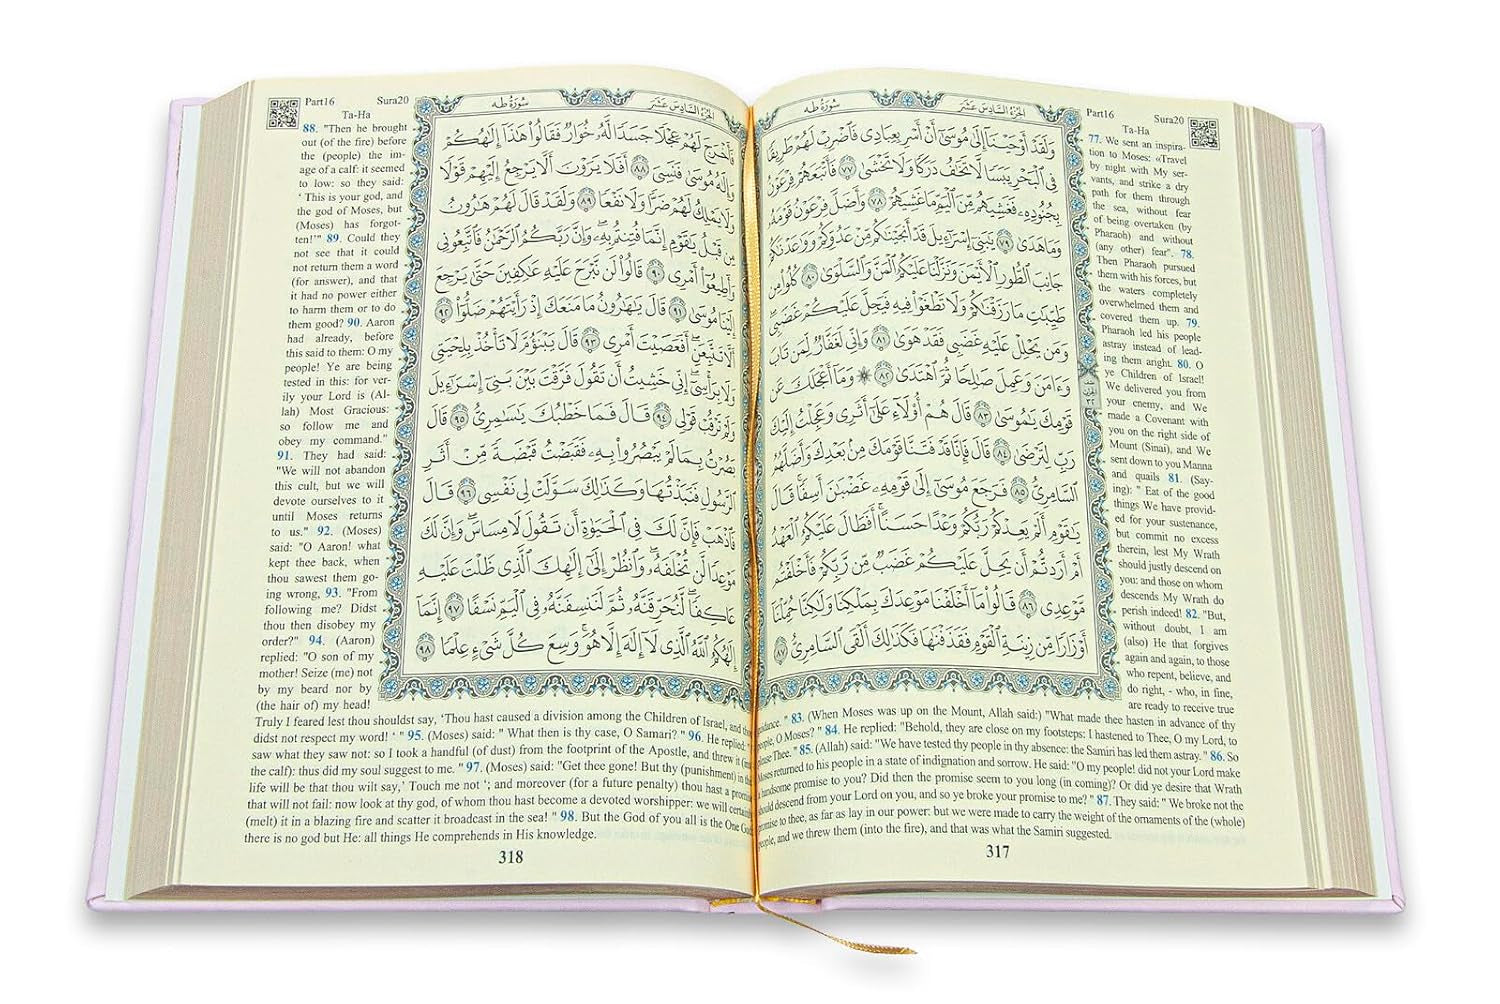 Part16 Sura20
Ta-Ha
الجزء السادس عشر
سورة طه
وَلَقَدْ أَوْحَيْنَآ إِلَىٰ مُوسَىٰٓ أَنْ أَسْرِ بِعِبَادِى فَٱضْرِبْ لَهُمْ طَرِيقًا
فِى ٱلْبَحْرِ يَبَسًا لَّا تَخَٰفُ دَرَكًا وَلَا تَخْشَىٰ ٧٧ فَأَتْبَعَهُمْ فِرْعَوْنُ
بِجُنُودِهِۦ فَغَشِيَهُم مِّنَ ٱلْيَمِّ مَا غَشِيَهُمْ ٧٨ وَأَضَلَّ فِرْعَوْنُ قَوْمَهُۥ
وَمَا هَدَىٰ ٧٩ يَٰبَنِىٓ إِسْرَٰٓءِيلَ قَدْ أَنجَيْنَٰكُم مِّنْ عَدُوِّكُمْ وَوَٰعَدْنَٰكُمْ
جَانِبَ ٱلطُّورِ ٱلْأَيْمَنَ وَنَزَّلْنَا عَلَيْكُمُ ٱلْمَنَّ وَٱلسَّلْوَىٰ ٨٠ كُلُوا۟ مِن
طَيِّبَٰتِ مَا رَزَقْنَٰكُمْ وَلَا تَطْغَوْا۟ فِيهِ فَيَحِلَّ عَلَيْكُمْ غَضَبِى ۖ
وَمَن يَحْلِلْ عَلَيْهِ غَضَبِى فَقَدْ هَوَىٰ ٨١ وَإِنِّى لَغَفَّارٌ لِّمَن تَابَ
وَءَامَنَ وَعَمِلَ صَٰلِحًا ثُمَّ ٱهْتَدَىٰ ٨٢ ۞ وَمَآ أَعْجَلَكَ عَن
قَوْمِكَ يَٰمُوسَىٰ ٨٣ قَالَ هُمْ أُو۟لَآءِ عَلَىٰٓ أَثَرِى وَعَجِلْتُ إِلَيْكَ
رَبِّ لِتَرْضَىٰ ٨٤ قَالَ فَإِنَّا قَدْ فَتَنَّا قَوْمَكَ مِنۢ بَعْدِكَ وَأَضَلَّهُمُ
ٱلسَّامِرِىُّ ٨٥ فَرَجَعَ مُوسَىٰٓ إِلَىٰ قَوْمِهِۦ غَضْبَٰنَ أَسِفًا ۚ قَالَ
يَٰقَوْمِ أَلَمْ يَعِدْكُمْ رَبُّكُمْ وَعْدًا حَسَنًا ۚ أَفَطَالَ عَلَيْكُمُ ٱلْعَهْدُ
أَمْ أَرَدتُّمْ أَن يَحِلَّ عَلَيْكُمْ غَضَبٌ مِّن رَّبِّكُمْ فَأَخْلَفْتُم
مَّوْعِدِى ٨٦ قَالُوا۟ مَآ أَخْلَفْنَا مَوْعِدَكَ بِمَلْكِنَا وَلَٰكِنَّا حُمِّلْنَآ
أَوْزَارًا مِّن زِينَةِ ٱلْقَوْمِ فَقَذَفْنَٰهَا فَكَذَٰلِكَ أَلْقَى ٱلسَّامِرِىُّ ٨٧
77. We sent an inspira-
tion to Moses: «Travel
by night with My ser-
vants, and strike a dry
path for them through
the sea, without fear
of being overtaken (by
Pharaoh) and without
(any other) fear". 78.
Then Pharaoh pursued
them with his forces, but
the waters completely
overwhelmed them and
covered them up. 79.
Pharaoh led his people
astray instead of lead-
ing them aright. 80. O
ye Children of Israel!
We delivered you from
your enemy, and We
made a Covenant with
you on the right side of
Mount (Sinai), and We
sent down to you Manna
and quails 81. (Say-
ing): " Eat of the good
things We have provid-
ed for your sustenance,
but commit no excess
therein, lest My Wrath
should justly descend on
you: and those on whom
descends My Wrath do
perish indeed! 82. "But,
without doubt, I am
(also) He that forgives
again and again, to those
who repent, believe, and
do right, - who, in fine,
are ready to receive true
guidance. " 83. (When Moses was up on the Mount, Allah said:) "What made thee hasten in advance of thy
people, O Moses? " 84. He replied: "Behold, they are close on my footsteps: I hastened to Thee, O my Lord, to
please Thee. " 85. (Allah) said: "We have tested thy people in thy absence: the Samiri has led them astray. " 86. So
Moses returned to his people in a state of indignation and sorrow. He said: "O my people! did not your Lord make
a handsome promise to you? Did then the promise seem to you long (in coming)? Or did ye desire that Wrath
should descend from your Lord on you, and so ye broke your promise to me? " 87. They said: "We broke not the
promise to thee, as far as lay in our power: but we were made to carry the weight of the ornaments of the (whole)
people, and we threw them (into the fire), and that was what the Samiri suggested.
317
Part16 Sura20
Ta-Ha
الجزء السادس عشر
سورة طه
فَأَخْرَجَ لَهُمْ عِجْلًا جَسَدًا لَّهُۥ خُوَارٌ فَقَالُوا۟ هَٰذَآ إِلَٰهُكُمْ
وَإِلَٰهُ مُوسَىٰ فَنَسِىَ ٨٨ أَفَلَا يَرَوْنَ أَلَّا يَرْجِعُ إِلَيْهِمْ قَوْلًا
وَلَا يَمْلِكُ لَهُمْ ضَرًّا وَلَا نَفْعًا ٨٩ وَلَقَدْ قَالَ لَهُمْ هَٰرُونُ
مِن قَبْلُ يَٰقَوْمِ إِنَّمَا فُتِنتُم بِهِۦ ۖ وَإِنَّ رَبَّكُمُ ٱلرَّحْمَٰنُ فَٱتَّبِعُونِى
وَأَطِيعُوٓا۟ أَمْرِى ٩٠ قَالُوا۟ لَن نَّبْرَحَ عَلَيْهِ عَٰكِفِينَ حَتَّىٰ يَرْجِعَ
إِلَيْنَا مُوسَىٰ ٩١ قَالَ يَٰهَٰرُونُ مَا مَنَعَكَ إِذْ رَأَيْتَهُمْ ضَلُّوٓا۟ ٩٢
أَلَّا تَتَّبِعَنِ ۖ أَفَعَصَيْتَ أَمْرِى ٩٣ قَالَ يَبْنَؤُمَّ لَا تَأْخُذْ بِلِحْيَتِى
وَلَا بِرَأْسِىٓ ۖ إِنِّى خَشِيتُ أَن تَقُولَ فَرَّقْتَ بَيْنَ بَنِىٓ إِسْرَٰٓءِيلَ
وَلَمْ تَرْقُبْ قَوْلِى ٩٤ قَالَ فَمَا خَطْبُكَ يَٰسَٰمِرِىُّ ٩٥ قَالَ
بَصُرْتُ بِمَا لَمْ يَبْصُرُوا۟ بِهِۦ فَقَبَضْتُ قَبْضَةً مِّنْ أَثَرِ
ٱلرَّسُولِ فَنَبَذْتُهَا وَكَذَٰلِكَ سَوَّلَتْ لِى نَفْسِى ٩٦ قَالَ
فَٱذْهَبْ فَإِنَّ لَكَ فِى ٱلْحَيَوٰةِ أَن تَقُولَ لَا مِسَاسَ ۖ وَإِنَّ لَكَ
مَوْعِدًا لَّن تُخْلَفَهُۥ ۖ وَٱنظُرْ إِلَىٰٓ إِلَٰهِكَ ٱلَّذِى ظَلْتَ عَلَيْهِ
عَاكِفًا ۖ لَّنُحَرِّقَنَّهُۥ ثُمَّ لَنَنسِفَنَّهُۥ فِى ٱلْيَمِّ نَسْفًا ٩٧ إِنَّمَآ
إِلَٰهُكُمُ ٱللَّهُ ٱلَّذِى لَآ إِلَٰهَ إِلَّا هُوَ ۚ وَسِعَ كُلَّ شَىْءٍ عِلْمًا ٩٨
88. "Then he brought
out (of the fire) before
the (people) the im-
age of a calf: it seemed
to low: so they said:
' This is your god, and
the god of Moses, but
(Moses) has forgot-
ten!'" 89. Could they
not see that it could
not return them a word
(for answer), and that
it had no power either
to harm them or to do
them good? 90. Aaron
had already, before
this said to them: O my
people! Ye are being
tested in this: for ver-
ily your Lord is (Al-
lah) Most Gracious:
so follow me and
obey my command."
91. They had said:
"We will not abandon
this cult, but we will
devote ourselves to it
until Moses returns
to us." 92. (Moses)
said: "O Aaron! what
kept thee back, when
thou sawest them go-
ing wrong, 93. "From
following me? Didst
thou then disobey my
order?" 94. (Aaron)
replied: "O son of my
mother! Seize (me) not
by my beard nor by
(the hair of) my head!
Truly I feared lest thou shouldst say, 'Thou hast caused a division among the Children of Israel, and thou
didst not respect my word! ' " 95. (Moses) said: " What then is thy case, O Samari? " 96. He replied: "I
saw what they saw not: so I took a handful (of dust) from the footprint of the Apostle, and threw it (into
the calf): thus did my soul suggest to me. " 97. (Moses) said: "Get thee gone! But thy (punishment) in this
life will be that thou wilt say,' Touch me not '; and moreover (for a future penalty) thou hast a promise
that will not fail: now look at thy god, of whom thou hast become a devoted worshipper: we will certainly
(melt) it in a blazing fire and scatter it broadcast in the sea! " 98. But the God of you all is the One God:
there is no god but He: all things He comprehends in His knowledge.
318